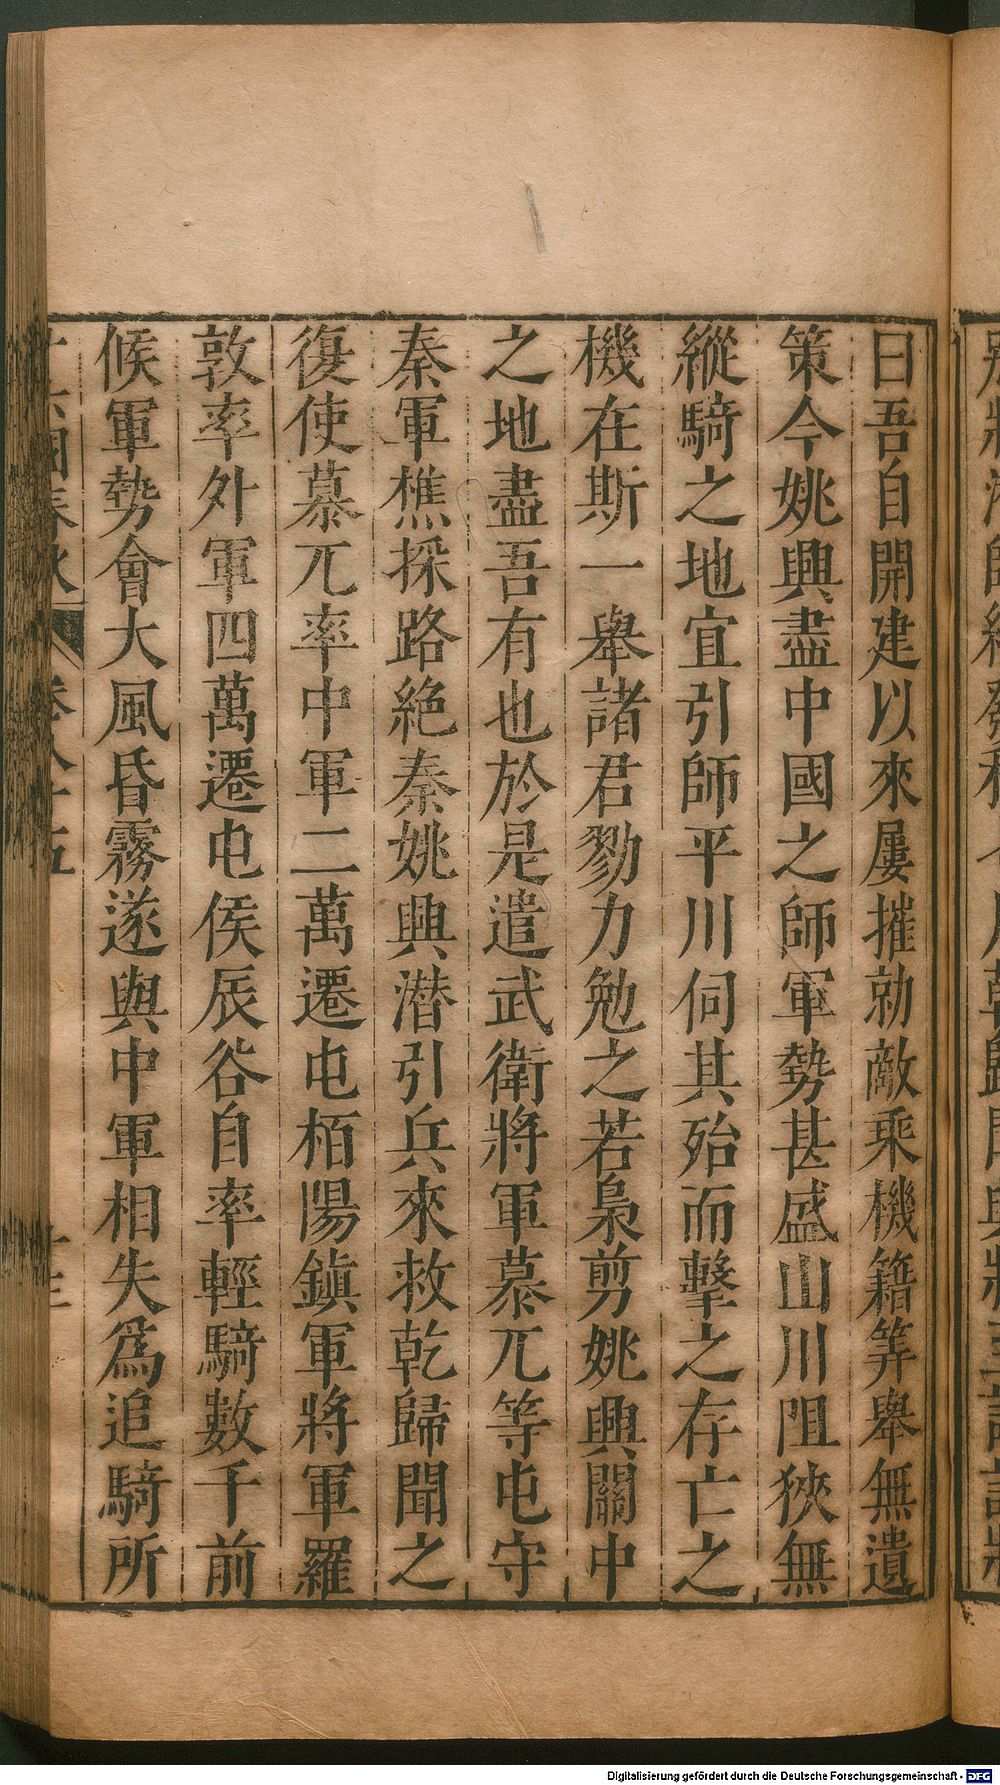 曰吾自開建以來屢摧勍敵乘機籍筭舉無遺
策今姚興盡中國之師軍勢甚盛山川阻狹無
縱騎之地宜引師平川伺其殆而擊之存亡之
機在斯一舉諸君勠力勉之若梟剪姚興關中
之地盡吾有也於是遣武衛將軍慕兀等屯守
秦軍樵採路絕秦姚興潜引兵來救乾歸聞之
復使慕兀率中軍二萬遷屯栢陽鎭軍將軍羅
敦率外軍四萬遷屯侯辰谷自率輕騎數千前
候軍勢會大風昏霧遂與中軍相失爲追騎所
十六國春秋 卷八十五 十三
Digitalisierung gefördert durch die Deutsche Forschungsgemeinschaft - DFG